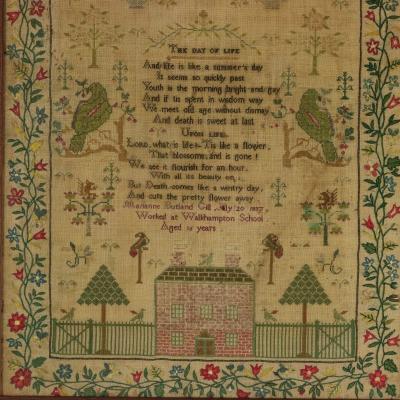 THE DAY OF LIFE
And life is like a summer's day
It seems so quickly past
Youth is the morning bright and gay
And if tis spent in wisdom way
We meet old age without dismay
And death is sweet at last
UPON LIFE
LORD, what is life Tis like a flower,
That blossoms, and is gone!
We see it flourish for an hour,
With all its beauty on,
But Death comes like a wintry day,
And cuts the pretty flower away
Marianne Gill July 20
Worked at Walkhampton School
Aged years